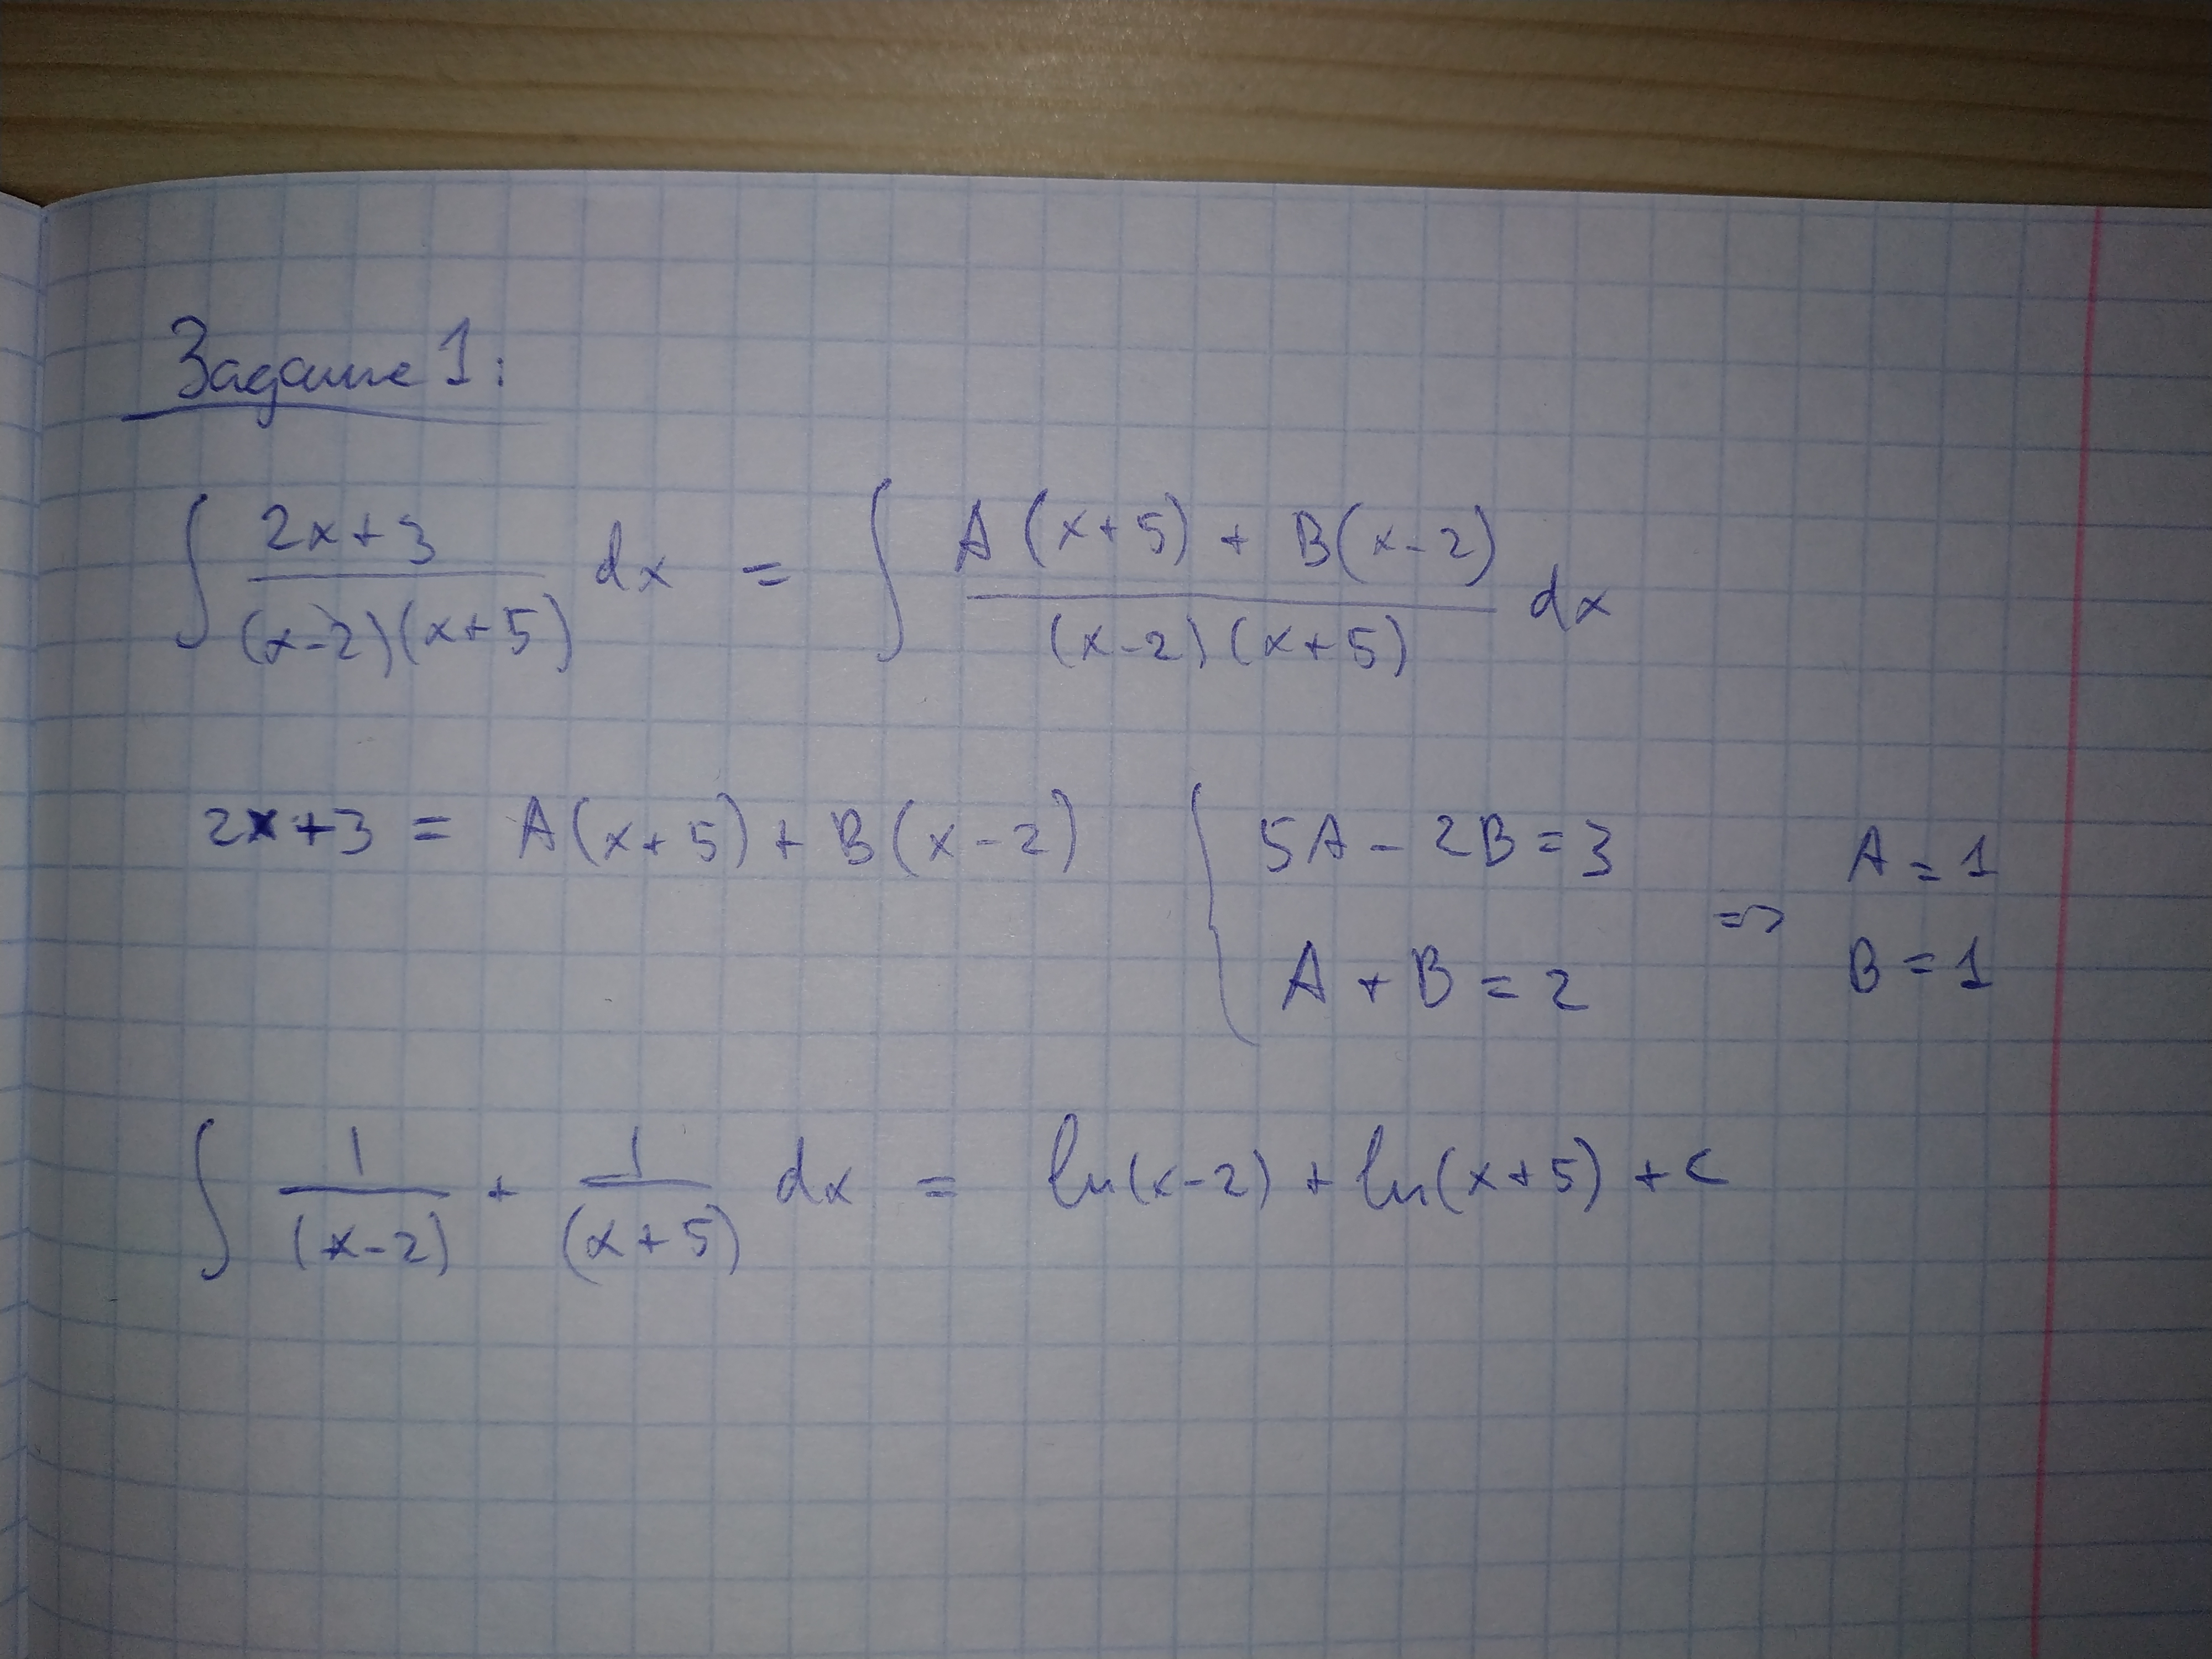 Задание 1:
∫ (2x+3)/((x-2)(x+5)) dx = ∫ (A(x+5) + B(x-2))/((x-2)(x+5)) dx
2x+3 = A(x+5) + B(x-2) { 5A - 2B = 3 => A = 1
A + B = 2 B = 1
∫ 1/(x-2) + 1/(x+5) dx = ln(x-2) + ln(x+5) + c